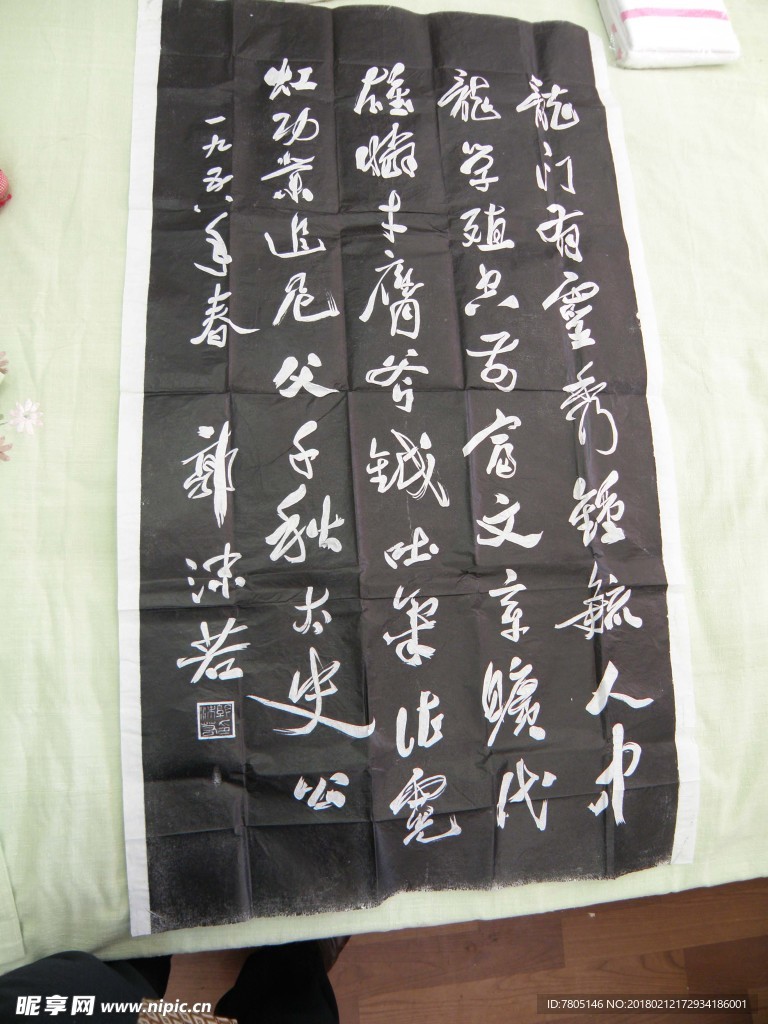 龍门有靈秀鍾毓人中
龍学殖空前富文章曠代
雄憐才膺斧鉞吐氣作霓
虹功業追尼父千秋太史公
一九五八年春 郭沫若
昵享网 www.nipic.cn
ID:7805146 NO:20180212172934186001